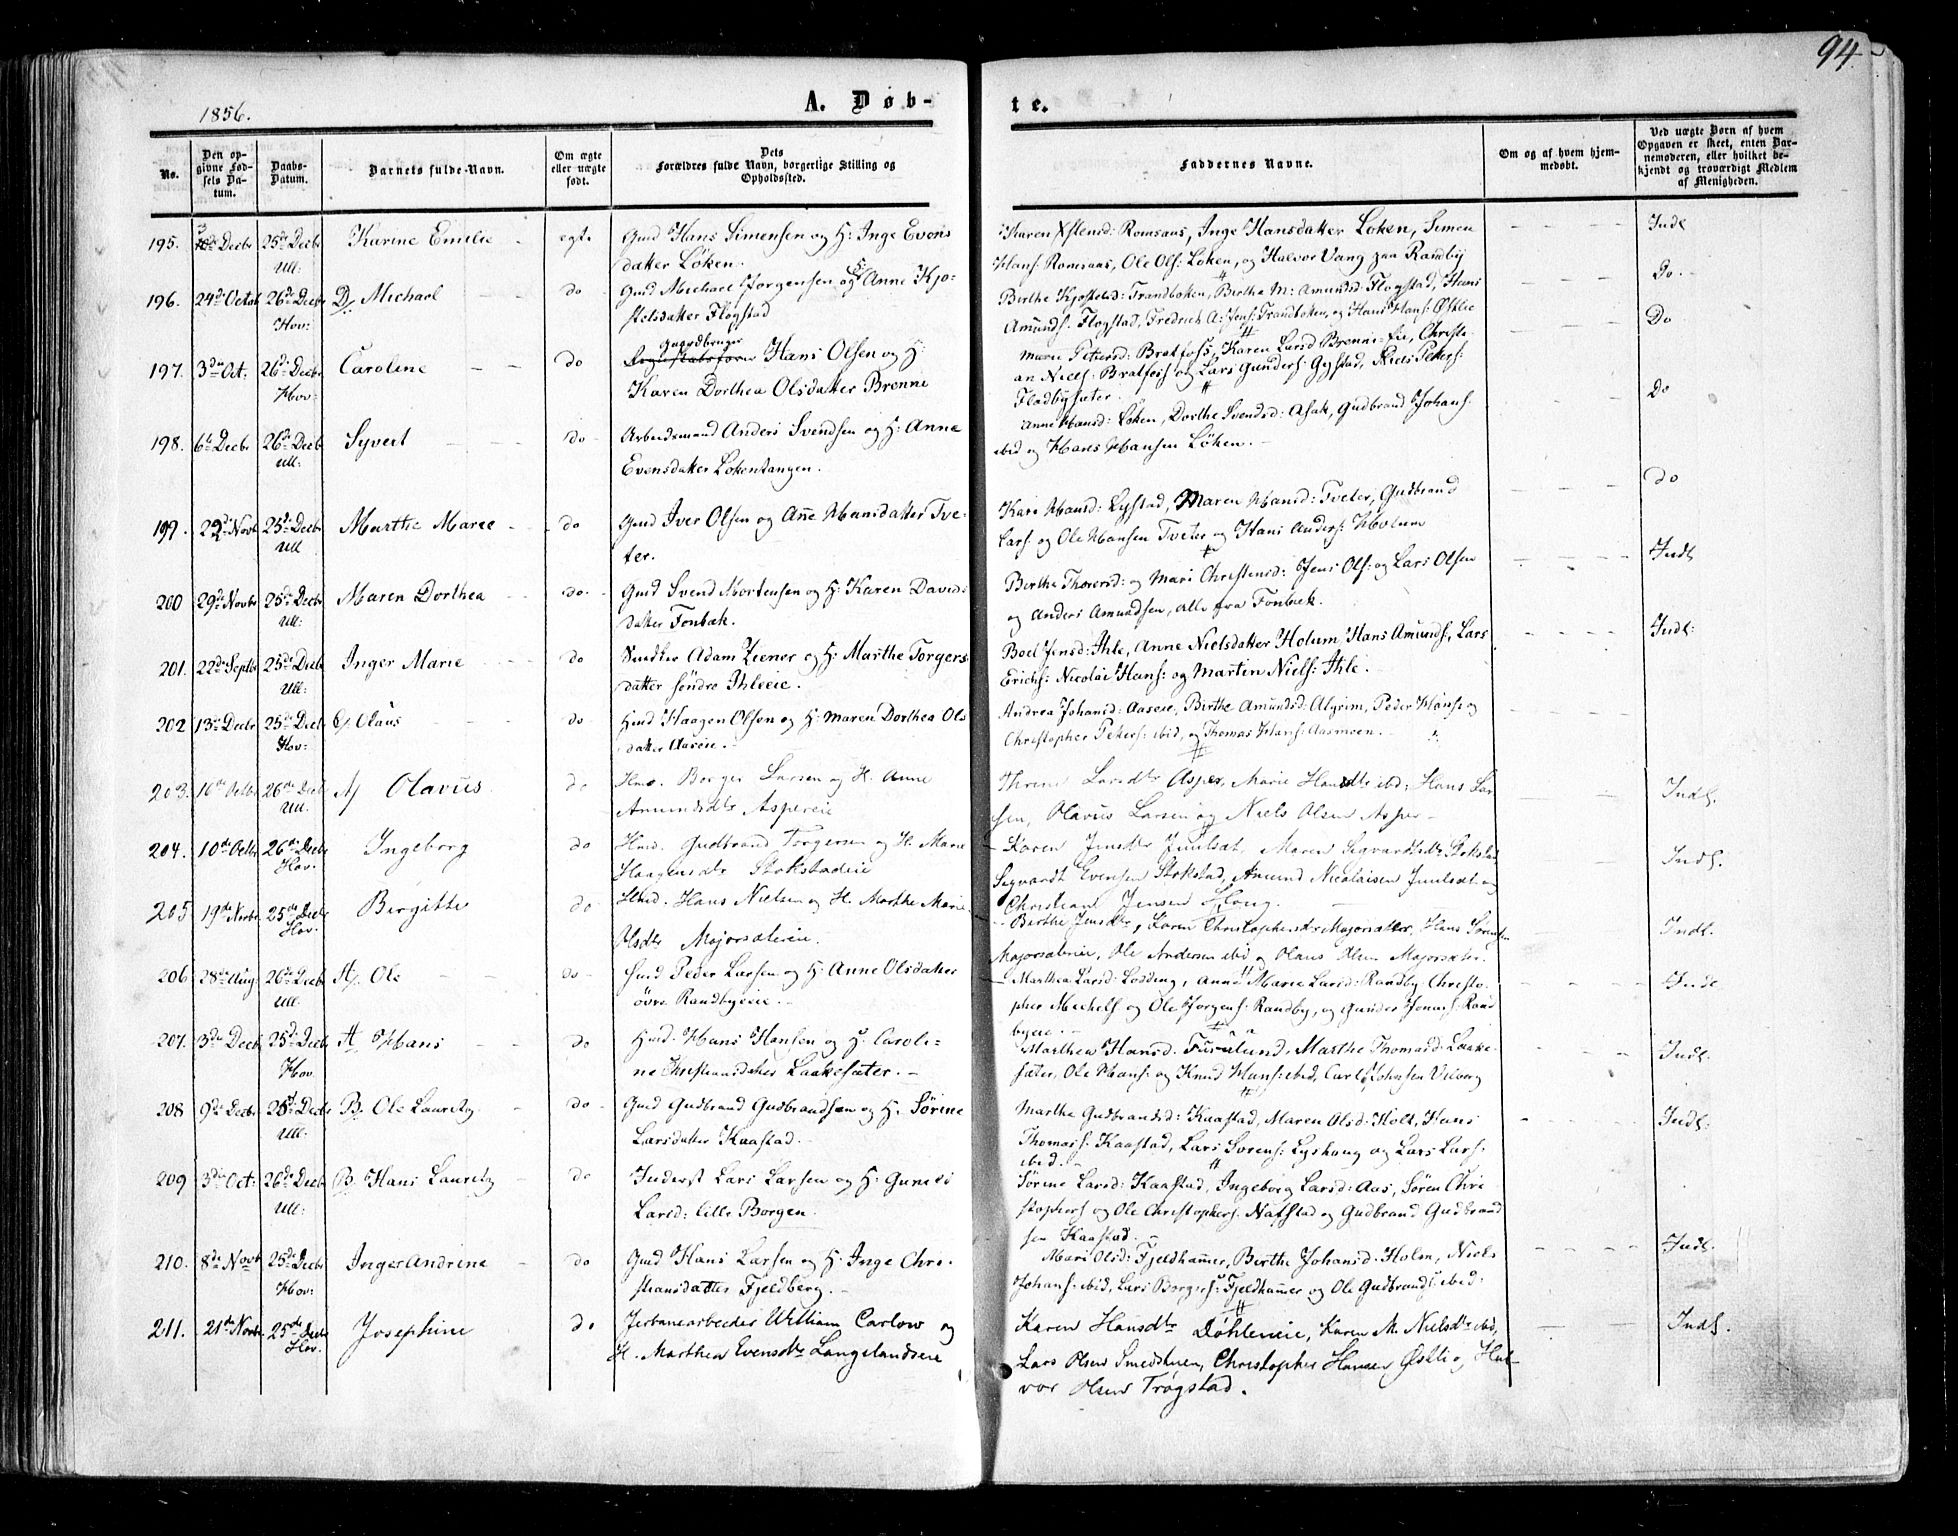 94.
1856.
A. Døb-
te.
No.
Den op-
givne Fød-
sels Da-
tum.
Daabs-
Datum.
Barnets fulde Navn.
Om ægte
eller uægte
født.
Dets
Forældres fulde Navn, borgerlige Stilling og
Opholdssted.
Faddernes Navne.
Om og af hvem hjem-
medøbt.
Ved uægte Børn af hvem
Opgaven er skeet, enten Bar-
nemoderen, eller hvilket be-
kjendt og troværdigt Medlem
af Menigheden.
195. 3 Decbr 25de Decbr Karine Emilie egte Gmd Hans Simensen og H: Inge Evens
Ull: datter Løken.
Karen Romsaas, Inge Hansdatter Løken, Simen
Hans: Romsaas, Ole Ols: Løken, og Halvor Vang paa Randby
Indl
196. 24de Octob 26de Decbr Michael do Gmd Michael Jørgensen og H: Anne Kjo-
Hov: stelsdatter Flogstad
Birthe Kjostelsd: Trandboken, Birthe M: Amunds: Flogstad, Hans
Amunds: Flogstad, Fredrich A: Jens: Trandboken, og Hans Hans: Østlie
Do.
197. 3die Oct: 26de Decbr Caroline do Gaardbruger Hans Olsen og H:
Hov: Karen Dorthea Olsdatter Brenne
Marie Petersd: Bratfoss, Karen Larsd Brenni-, Christi-
an Niels: Bratfoss og Lars Gunders: Gystad, Niels Peters:
Fladbysæter.
Do
198. 6te Decbr 26de Decbr Syvert do Arbeidsmand Anders Svendsen og H: Anne
Ull: Evensdatter Løkentangen.
Anne Hansd: Løken, Dorthe Svendsd: Asak, Gudbrand Johans:
ibid og Hans Hansen Løken.
Do
199. 22de Novb 25de Decbr Marthe Marie do Gmd Iver Olsen og Anne Hansdatter Tve-
Ull ter.
Kari Hansd: Lystad, Maren Hansd: Tveter, Gudbrand
Lars: og Ole Hansen Tveter og Hans Anders: Holum
do
200 29de Novbr 25de Decbr Maren Dorthea do Gmd Svend Mortensen og H: Karen Davids
Ull: datter Fonbæk.
Birthe Thoresd: og Mari Christensd: Jens Ols: og Lars Olsen
og Anders Amundsen, alle fra Fonbæk.
Indl
201. 22de Septbr 25de Decbr Inger Marie do Snedker Adam Ziener og H: Marthe Torgers
Ull: datter søndre Ihleeie.
Boel Jensd: Ihle, Anne Nielsdatter Holum Hans Amunds:, Lars
Erichs: Nicolai Hans: og Martin Niels: Ihle.
Indl:
202 13de Decbr 25de Decbr Olaus do Hmd Haagen Olsen og H: Maren Dorthea Ols
Hov: datter Aaseie.
Andrea Johansd: Aaseie, Birthe Amundsd: Algrim, Peder Hans: og
Christopher Peters: ibid, og Thomas Hans: Aasmoen.
203. 10de Octbr 26de Decb Olavus do Hmd. Borger Larsen og H. Anne
Ull. Amundsdtr Aspereie
Larsdtr Asper, Marie Hansdtr ibid: Hans Lar
sen, Olavus Larsen og Niels Olsen Asper
Indl.
204. 10de Octbr 26de Decbr Ingeborg do Hmd. Gudbrand Torgersen og H. Marie
Hov. Haagensdtr Stokstadeie
Karen Jensdtr Juulsæt, Maren Sigvardtsdtr Stokstad
Sigvardt Evensen Stokstad, Amund Nicolaisen Juulsæt og
Christian Jensen Houg.
Indl.
205 19de Novbr 25de Decbr Birgitte do Hmd. Hans Nielsen og H. Marthe Marie
Hov. Olsdtr Majorsæterie.
Birthe Jensdtr, Karen Christophersdtr Majorsæter, Hans Sørensen
Majorsæterie, Ole Andersen ibid og Olaus Olsen Majorsæter.
Indl.
206 28de Aug: 26de Decbr Ole do Hmd Peder Larsen og H: Anne Olsdatter
Ull øvre Randbyeie.
Marthea Larsd: Losding, Anne Marie Larsd: Randby Christo-
pher Michels og Ole Jørgens: Randby, og Gunder Jonas: Rand
byeie.
Indl
207. 3die Decbr 25de Decbr Hans do Hmd. Hans Hansen og H: Caroli-
Hov. ne Christiansdatter Laakesæter.
Marthea Hansd. Furulund, Marthe Thomasd: Laake-
sæter, Ole Hans: og Knud Hans: ibid, Carl Johnsen Vilberg
Indl.
208 9de Decbr 26de Decbr Ole Lauritz do Gmd Gudbrand Gudbrandsen og H: Sørine
Ull: Larsdatter Kaastad.
Marthe Gudbrandsd: Kaastad, Maren Olsd: Holt, Hans
Thomas: Kaastad, Lars Sorens: Lyshoug og Lars Lars:
ibid.
Indl.
209 3die Oct: 26de Decbr Hans Lauritz do Inderst Lars Larsen og H:
Ull: Larsd: lille Borgen.
Sørine Larsd: Kaastad, Ingeborg Larsd: Aas, Søren Chri
stophers og Ole Christophers: Nafstad og Gudbrand Gudbrand
sen Kaastad.
210. 8de Novb 25de Decbr Inger Andrine do Gmd Hans Larsen og H: Inge Chri-
Hov: stiansdatter Fjeldberg.
Mari Olsd: Fjeldhamer, Birthe Johansd: Holm, Niels
Johans: ibid, Lars Borgers: Fjeldhamer og Ole Gudbrands: ibid.
Indl.
211. 21de Novbr 25de Decbr Josephine do Jerbanearbeider William Carlow og
Hov. H. Marthea Evensdtr Langelandseie
Karen Hansdtr Døhleneie, Karen M. Nielsdtr ibid,
Lars Olsen Smedstuen, Christopher Hansen Østli og Hal-
vor Olsen Trøgstad.
Indl.